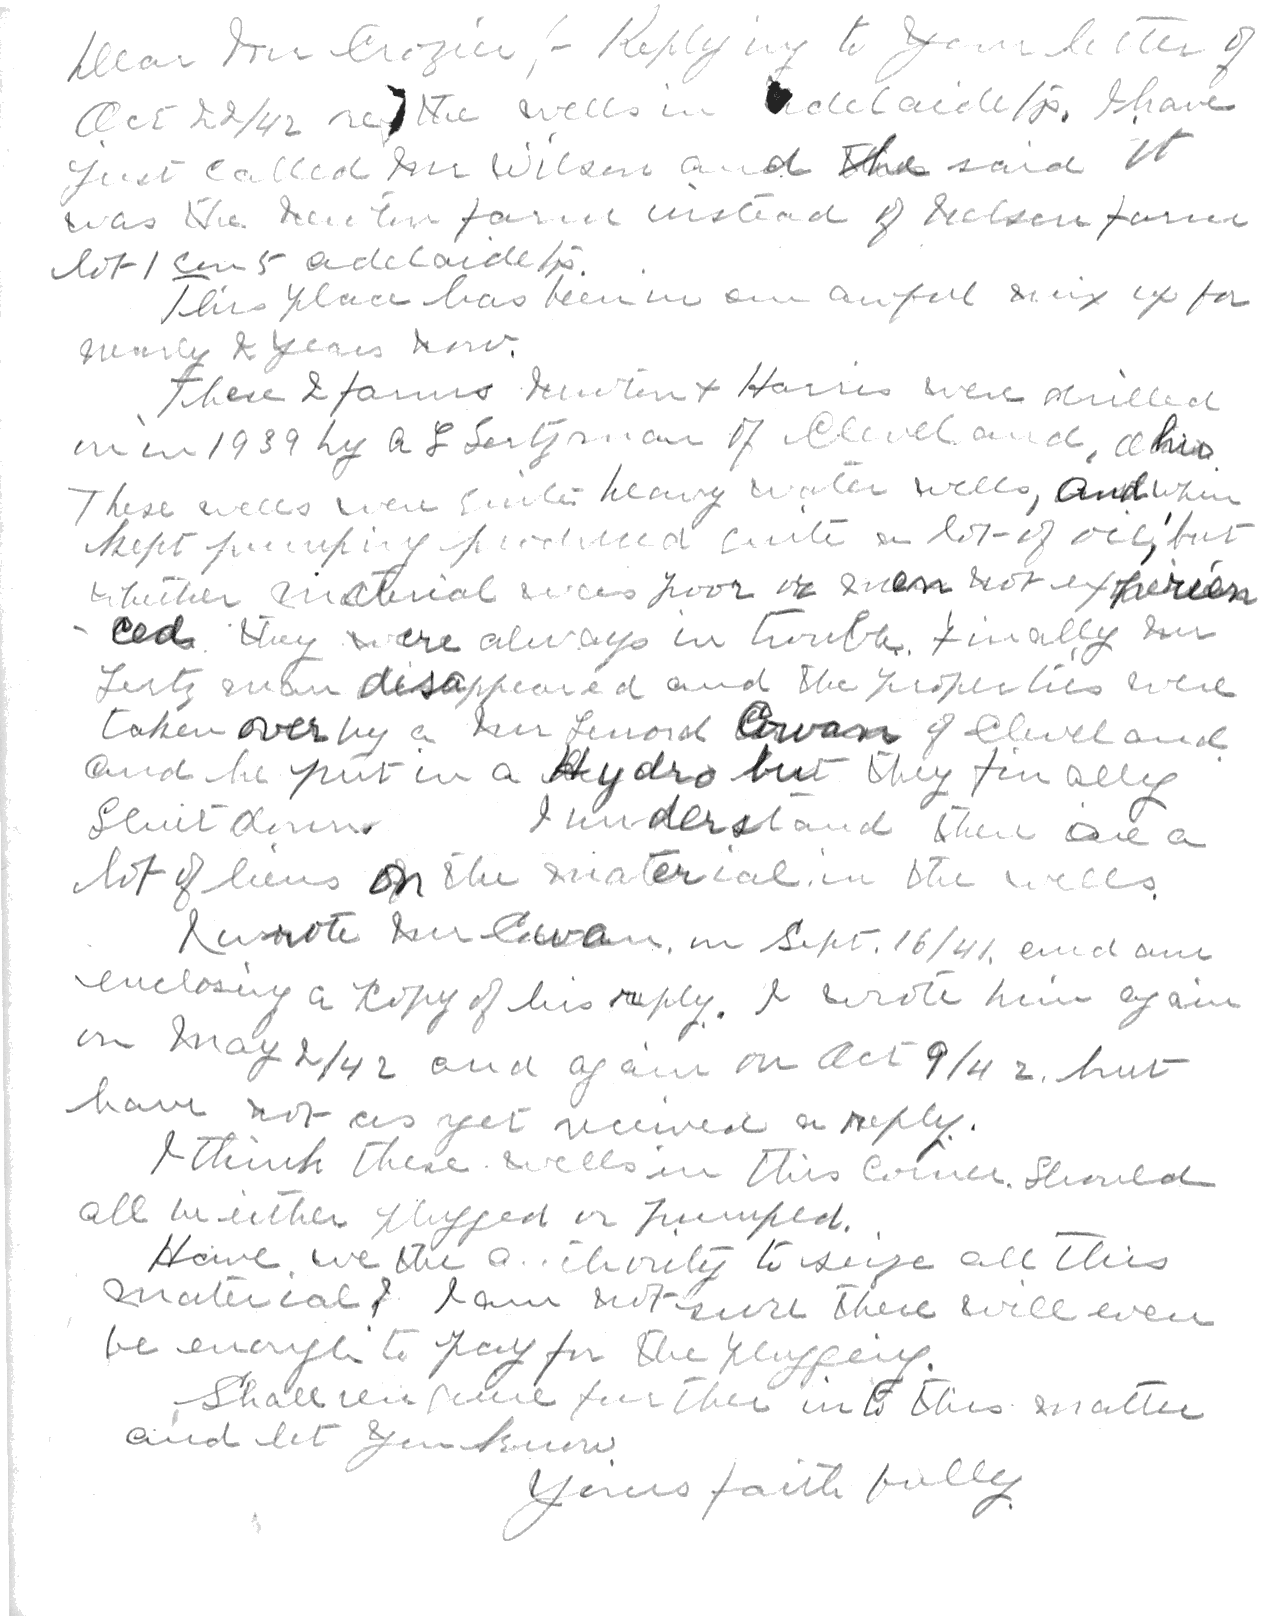 Dear Mr Crozier,- Replying to your letter of
Oct 22/42 re, the wells in Adelaide Tp. I have
just called Mr Wilson and he said it
was the Newton farm instead of Nelson farm
lot 1 Con 5 Adelaide Tp.
This place has been in an awful mix up for
nearly 2 years now.
These 2 farms Newton & Harris were drilled
on in 1939 by A L of Cleveland, Ohio.
These wells were quite heavy water wells, and when
kept pumping produced quite a lot of oil, but
whether material was poor or men not experien
- ced they were always in trouble. Finally Mr
disappeared and the properties were
taken over by a Mr Cowan of Cleveland
and he put in a Hydro but they finally
Shut down. I understand there are a
lot of liens on the material in the wells.
I wrote Mr Cowan, on Sept. 16/41. and am
enclosing a Copy of his reply. I wrote him again
on May 2/42 and again on Oct 9/42. but
have not as yet received a reply.
I think these wells in this Corner Should
all be either plugged or pumped.
Have we the a..thority to seize all this
material? I am not sure there will even
be enough to pay for the plugging.
Shall further into this matter
and let you know
Yours faithfully.